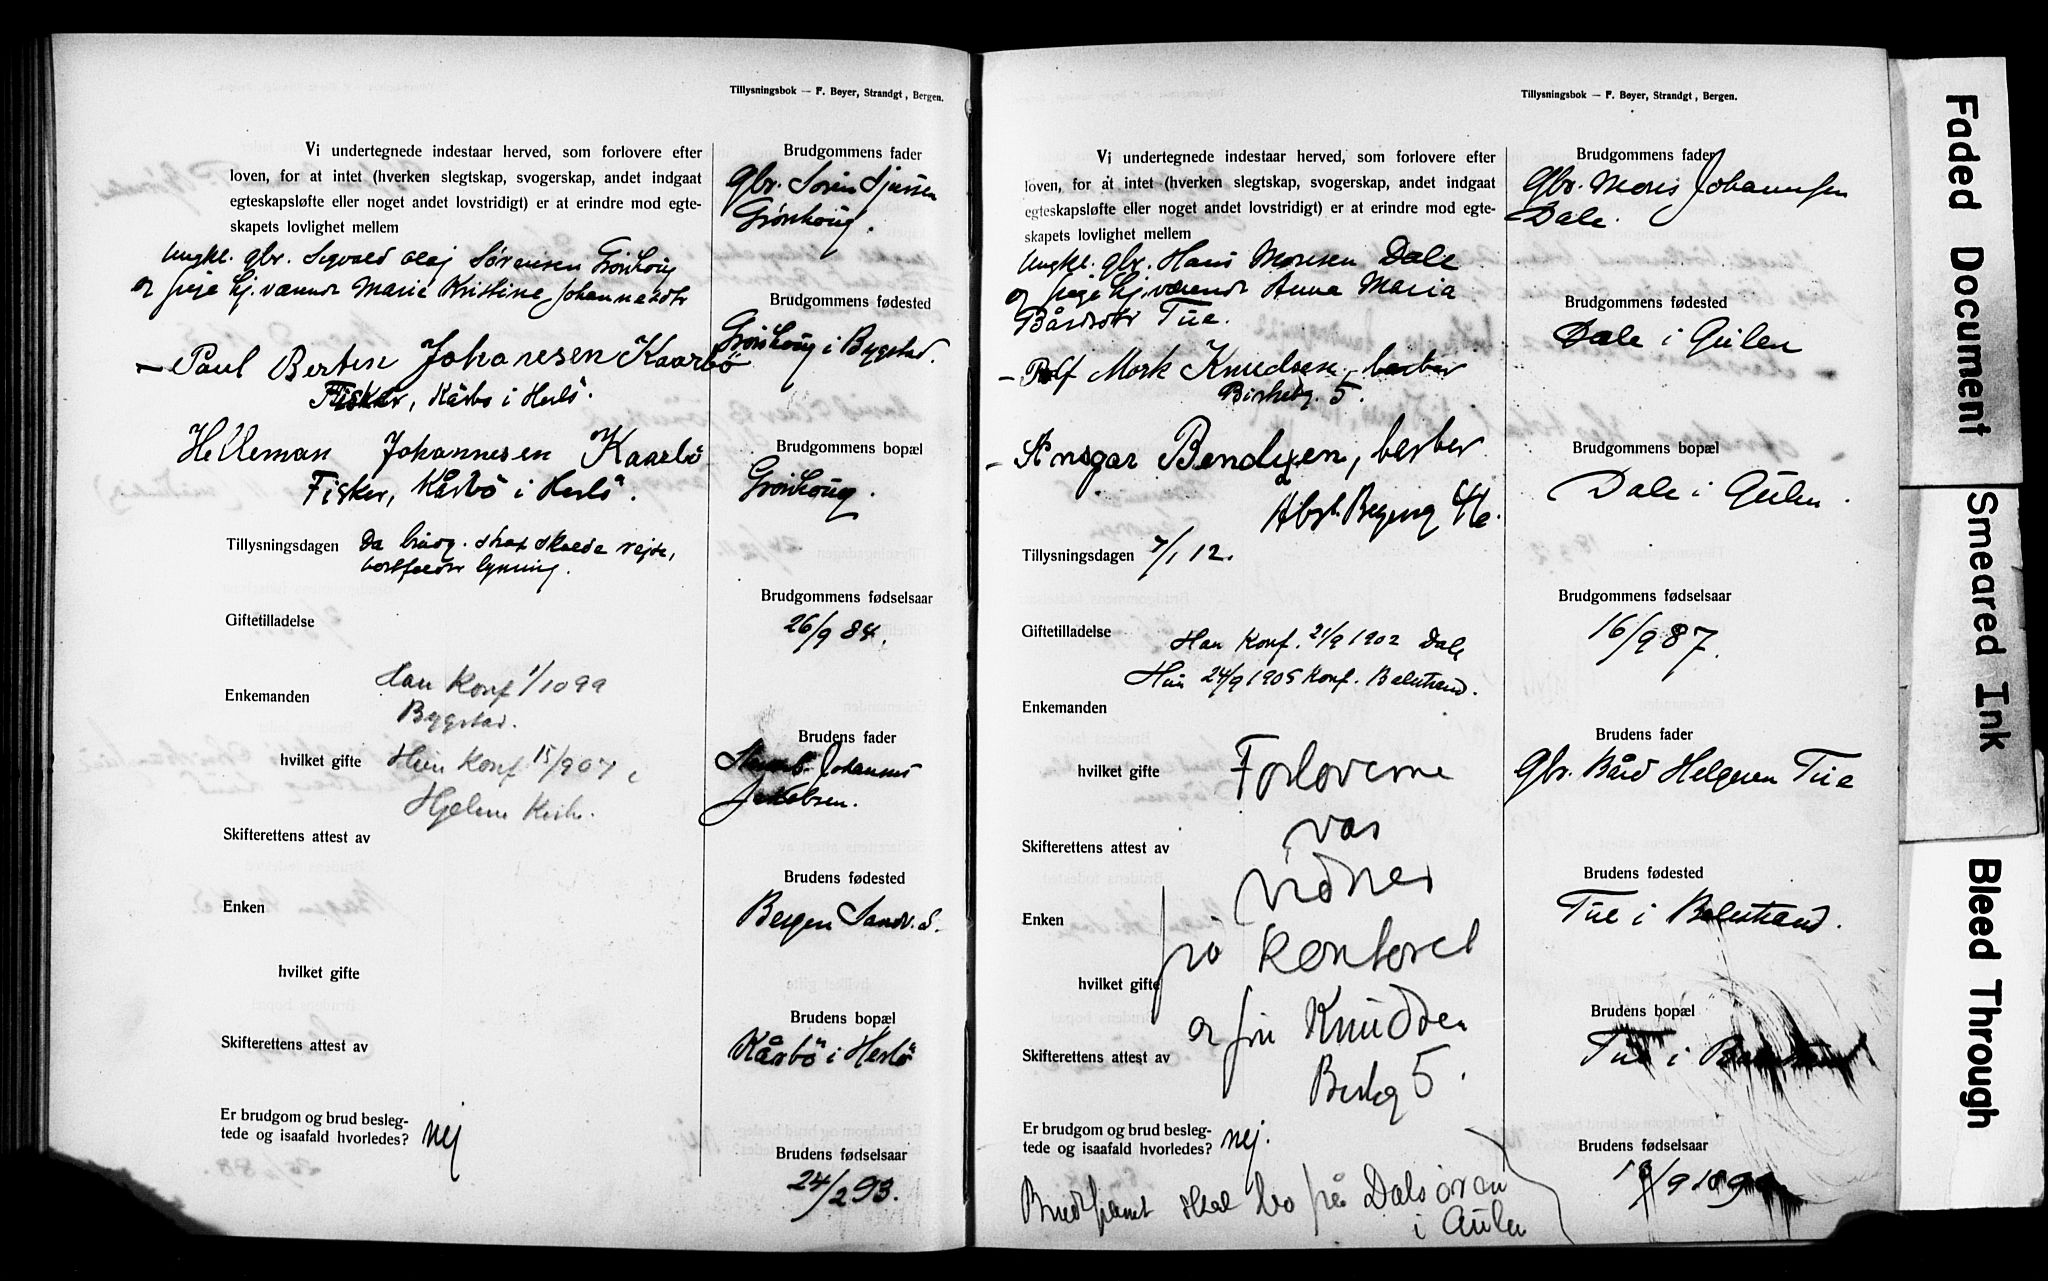 Tillysningsbok — F. Bøyer, Strandgt, Bergen.
Vi undertegnede indestaar herved, som forlovere efter
loven, for at intet (hverken slegtskap, svogerskap, andet indgaat
egteskapsløfte eller noget andet lovstridigt) er at erindre mod egte-
skapets lovlighet mellem
ungkl. gbr. Sigvald Olaj Sørensen Grönhoug
og pige hj.værende Marie Kristine Johannesdtr
— Paul Berten Johanesen Kaarbö
Fisker, Kårbö i Herlö.
Helleman Johannesen Kaarbö
Fisker, Kårbö i Herlö.
Tillysningsdagen Da brudg. strax skulde rejse,
bortfalder lysning.
Giftetilladelse
Han konf 1/10 99
Enkemanden
Bygstad.
hvilket gifte Hun konf 15/9 07 i
Hjelme Kirke.
Skifterettens attest av
Enken
hvilket gifte
Skifterettens attest av
Er brudgom og brud besleg-
tede og isaafald hvorledes? nej
Brudgommens fader
Gbr. Sören Sjursen
Grönhoug.
Brudgommens fødested
Grönhoug i Bygstad.
Brudgommens bopæl
Grönhoug.
Brudgommens fødselsaar
26/9 84.
Brudens fader
Johannes
Brudens fødested
Bergen Sandv. s.
Brudens bopæl
Kårbö i Herlö
Brudens fødselsaar
24/2 93.
Tillysningsbok — F. Bøyer, Strandgt, Bergen.
Vi undertegnede indestaar herved, som forlovere efter
loven, for at intet (hverken slegtskap, svogerskap, andet indgaat
egteskapsløfte eller noget andet lovstridigt) er at erindre mod egte-
skapets lovlighet mellem
ungkl. gbr. Hans Monsen Dale
og pige hj.værende Anna Maria
Bårdsdtr Tue.
— Rolf Mork Knudsen, barber
Birkebg. 5.
— Ansgar Bendixen, barber
Tillysningsdagen 7/1 12.
Giftetilladelse
Han konf. 21/9 1902 Dale
Hun 24/9 1905 konf. Balestrand.
Enkemanden
hvilket gifte Forloverne
var
Skifterettens attest av
vidner
Enken
på kontoret
hvilket gifte
og fru Knudsen
Skifterettens attest av
Birkbg 5.
Er brudgom og brud besleg-
tede og isaafald hvorledes? nej.
Brudeparret skal bo på Dalsören
i Gulen
Brudgommens fader
Gbr. Mons Johannesen
Dale.
Brudgommens fødested
Dale i Gulen
Brudgommens bopæl
Dale i Gulen.
Brudgommens fødselsaar
16/9 87.
Brudens fader
Gbr. Bård Helgesen Tue
Brudens fødested
Tue i Balestrand.
Brudens bopæl
Tue i Balestrand
Brudens fødselsaar
Faded Document
Smeared Ink
Bleed Through